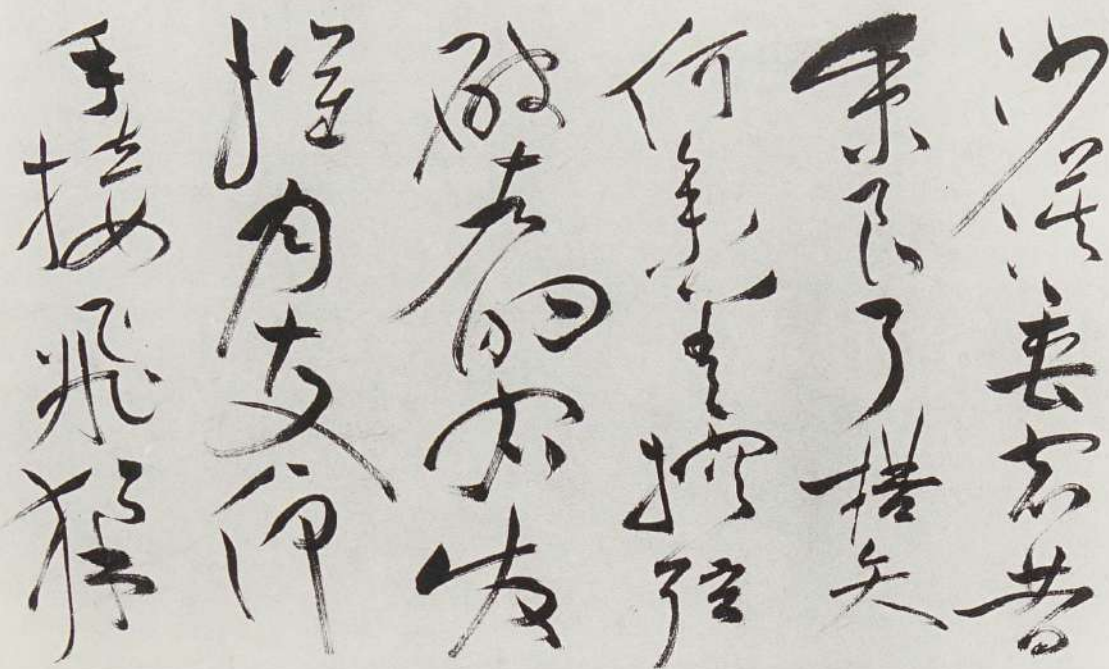 沙漠垂宿昔
秉良弓楛矢
何參差控弦
破左的右發
摧月支仰
手接飛猱